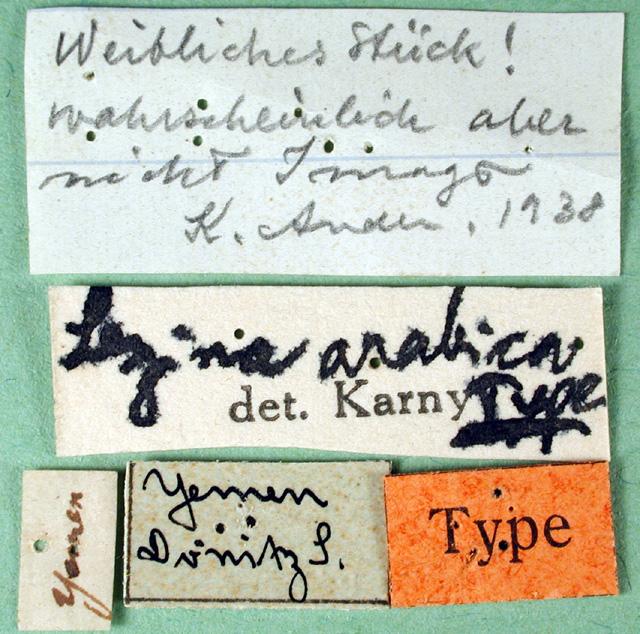 Weibliches Stück!
wahrscheinlich aber
nicht Imago
K. Ander, 1938
Lezina arabica
det. Karny Type
Yemen
Yemen
Dönitz S.
Type